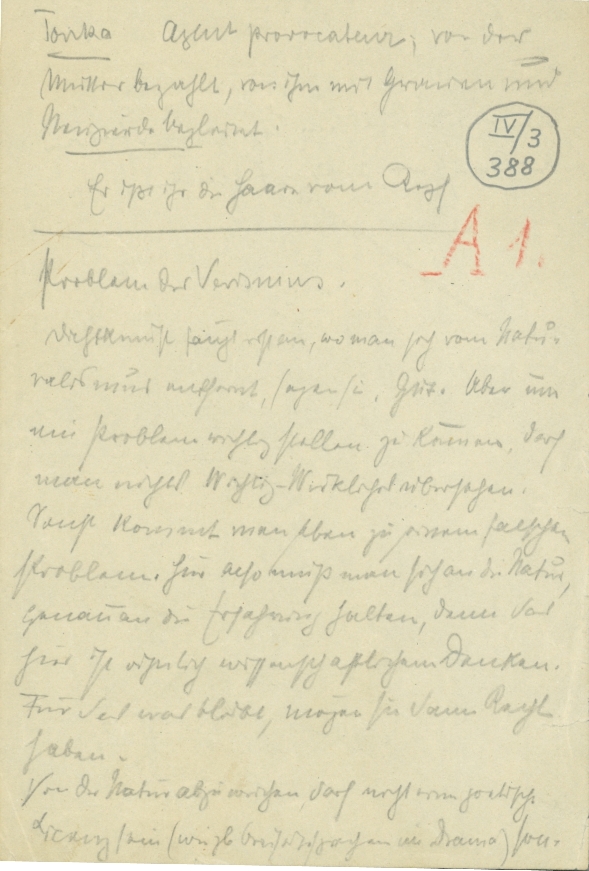 Tonka Agent provocateur; von der
Mutter bezahlt, von ihm mit Grauen und
Neugierde begleitet.
IV/3
388
Er ißt ihr die Haare vom Kopf
A 1.
Problem des Verismus.
Dichtkunst fängt erst an, wo man sich vom Natu-
ralismus entfernt, sagen sie. Gut. Aber um
ein Problem richtig stellen zu können, darf
man nichts Wichtig-Wirkliches übersehen.
Sonst kommt man eben zu einem falschen
Problem. Hier also muß man sich an die Natur,
genau an die Erfahrung halten, denn das
hier ist ähnlich wissenschaftlichem Denken.
Für das was bleibt, mögen sie dann Recht
haben.
Von der Natur abzuweichen, darf nicht eine poetische
Licenz sein (wie zb. sprechen im Drama) son-